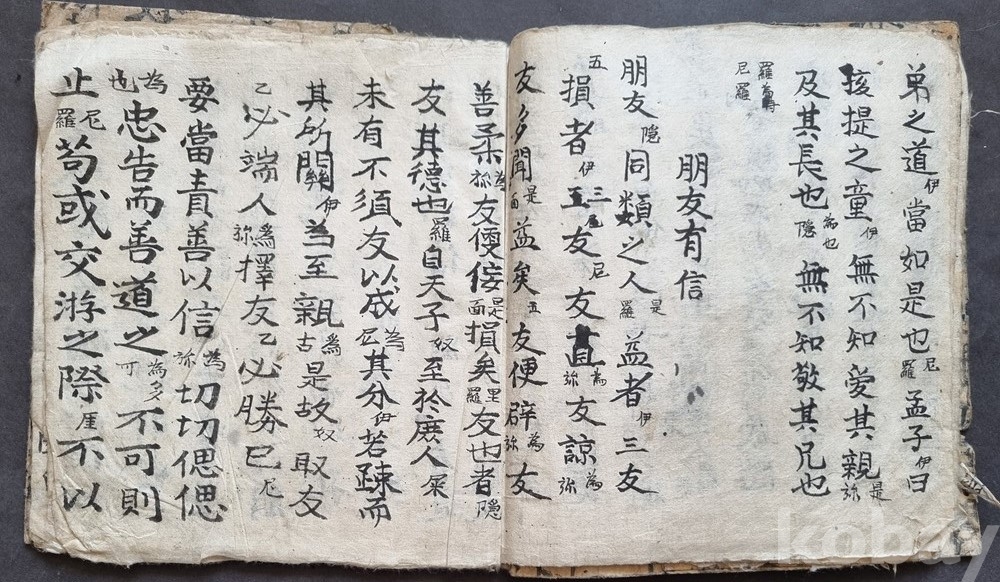 弟之道伊當如是也尼羅孟子伊曰
孩提之童伊無不知愛其親是弥
及其長也為也隱無不知敬其兄也
羅為時尼羅
朋友有信
朋友隱同類之人是羅益者伊三友
五損者伊三尼五友尼友直為弥友諒為弥
友多聞是面益矣五友便辟為弥友
善柔為弥友便佞是面損矣里羅友也者隱
友其德也羅自天子奴至於庶人屎
未有不須友以成為尼其分伊若疎而
其所關伊為至親為古是故奴取友
乙必端人為弥擇友乙必勝己尼
要當責善以信為弥切切偲偲
為也忠告而善道之為多可不可則
止尼羅苟或交游之際厓不以
kobay